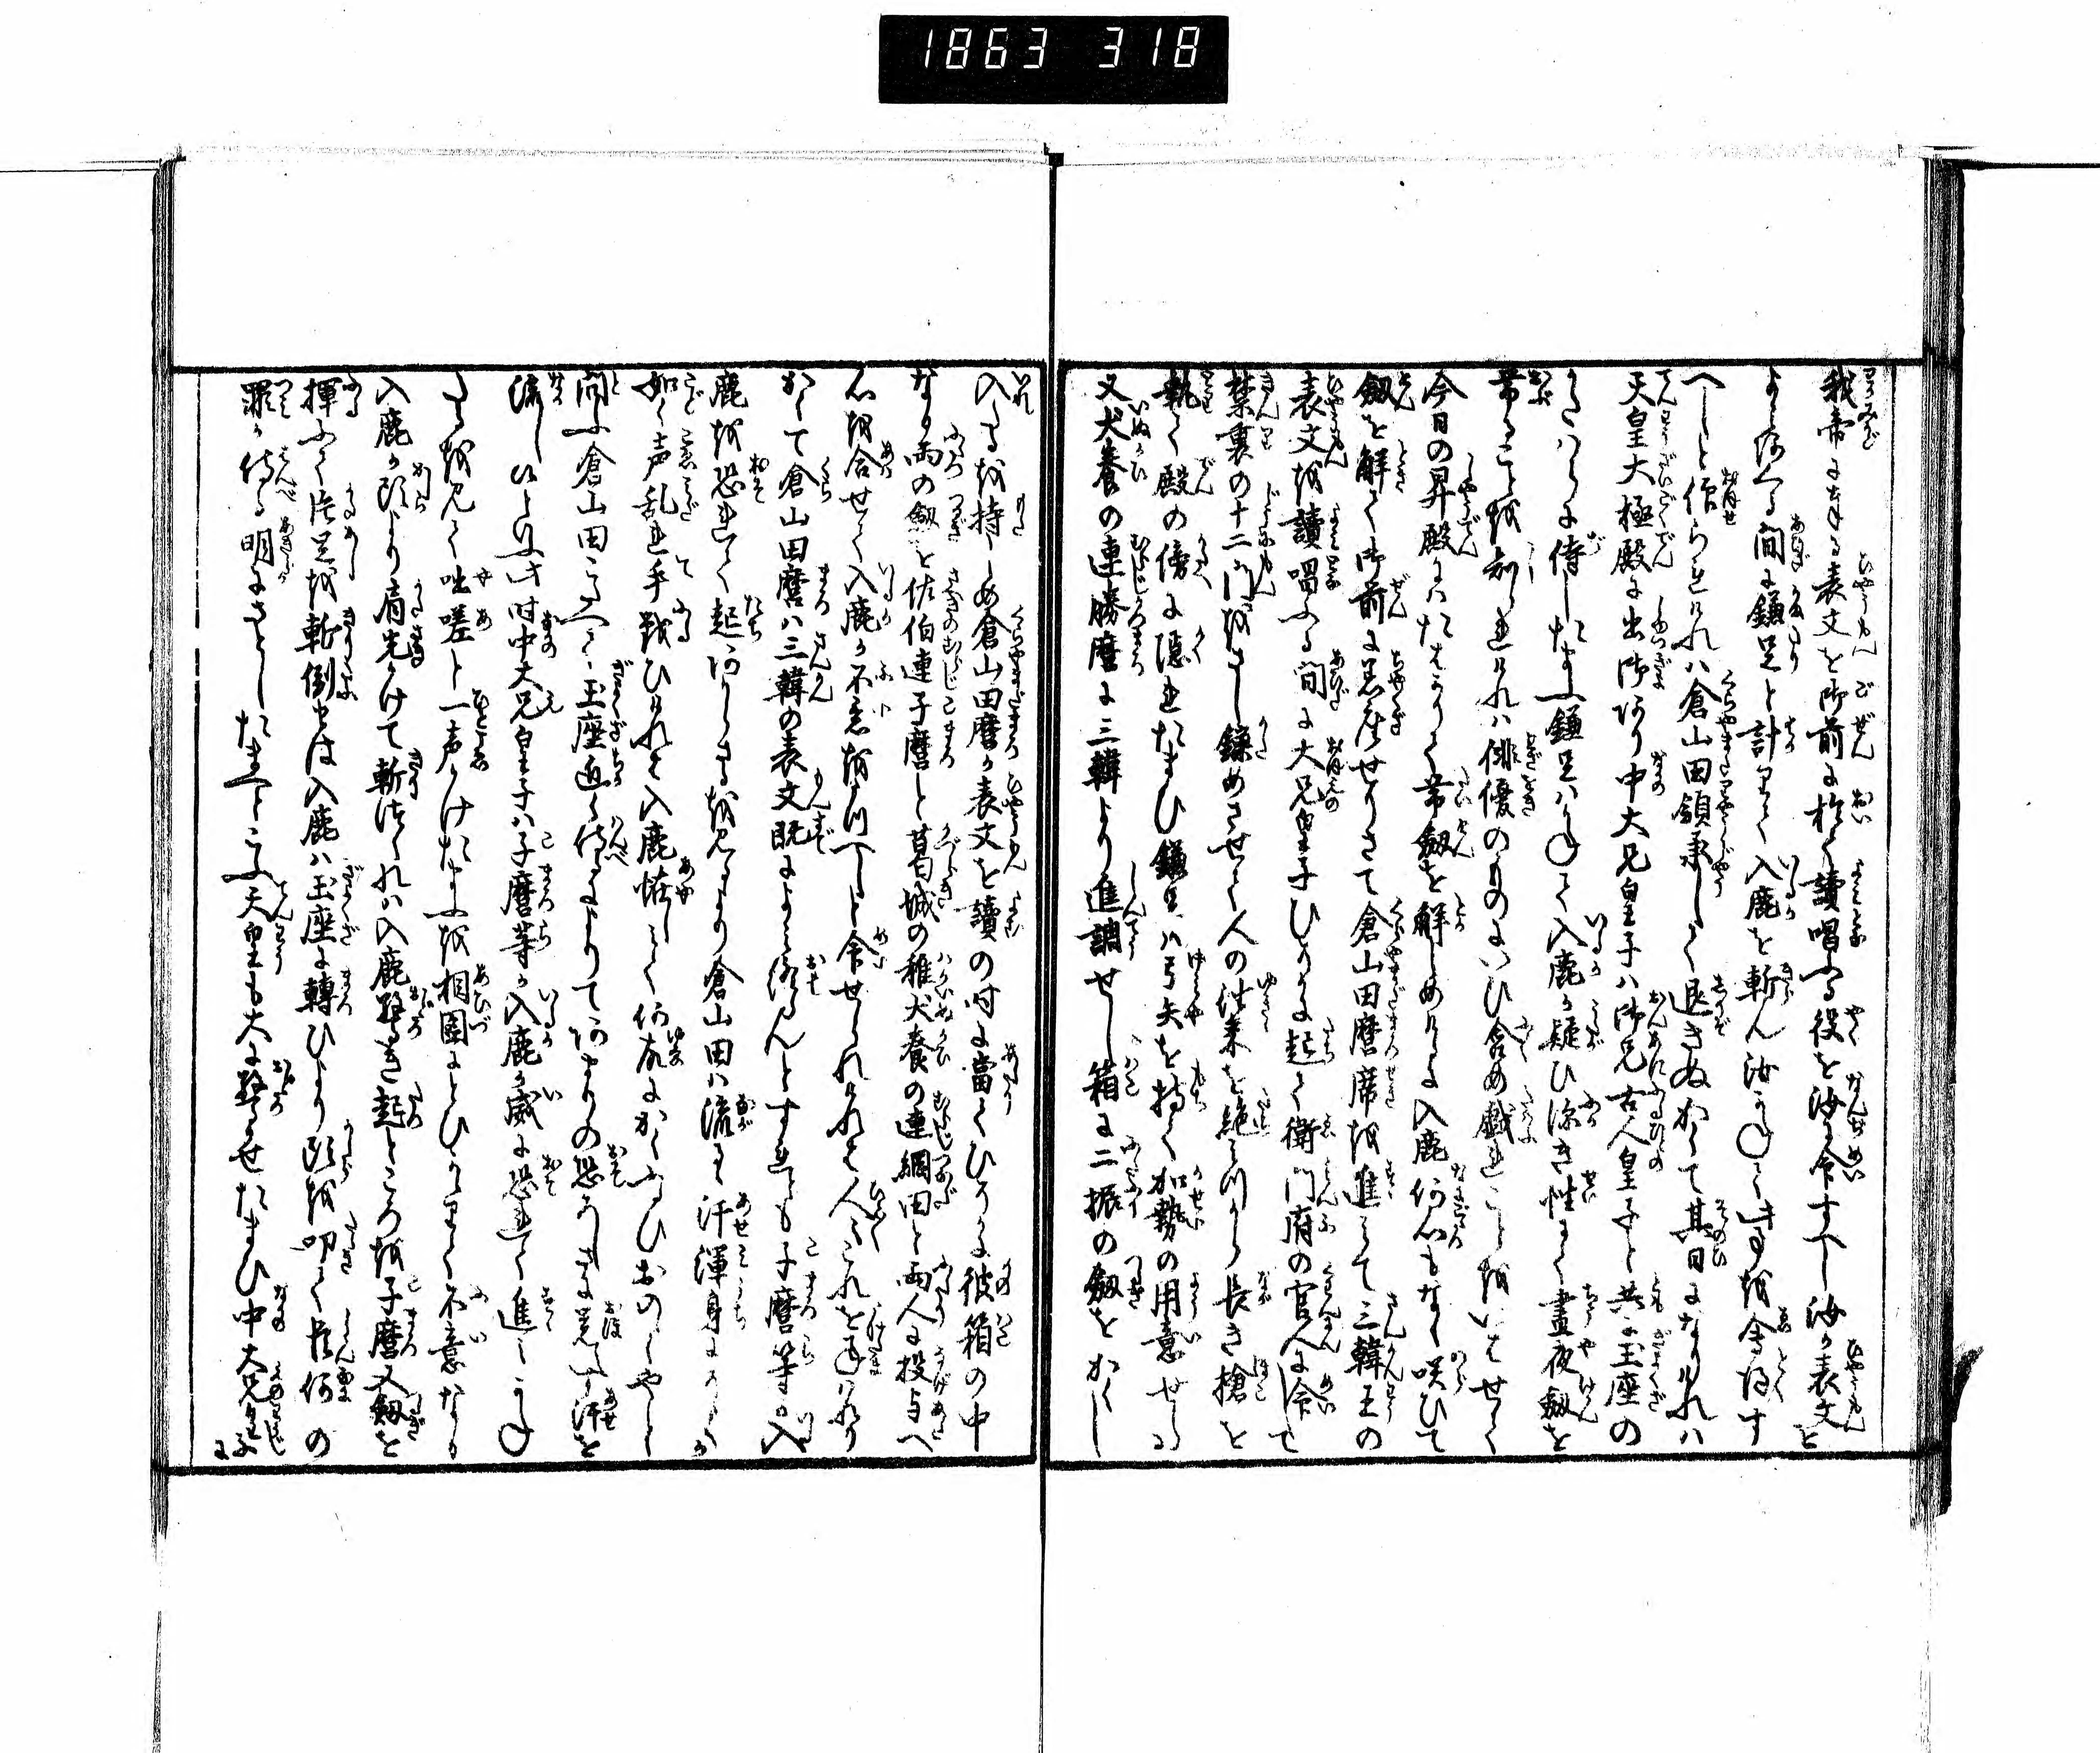 1863 318
我帝に奉る表文を御前に於て讀唱ふる役を汝に命すへし汝か表文を
よみ終る間に鎌足と計りて入鹿を斬ん汝かねて此事を会得す
へしと仰られけれハ倉山田領承して退きぬかくて其日になりけれハ
天皇大極殿に出御あり中大兄皇子ハ御兄古人皇子と共に玉座の
かたハらに侍したまふ鎌足ハかねて入鹿か疑ひ深き性にて昼夜劔を
帯ることを知られけれハ俳優のものにいひ含め戯れことをいはせて
今日の昇殿にハたはかりて帯劔を解しめけるに入鹿何心もなく咲ひて
劔を解て御前に着座せりさて倉山田麿席を進みて三韓王の
表文を讀唱ふる間に大兄皇子ひそかに起て衛門府の官人に令して
禁裏の十二門をさし鎌めさせて人の往来を絶しつから長き槍を
執て殿の傍に隠れたまひ鎌足ハ弓矢を持て加勢の用意せらる
又犬養の連勝麿に三韓より進調せし箱に二振の劔をかくし
入るを持しめ倉山田麿か表文を讀の時に當てひそかに彼箱の中
なる両の劔を佐伯連子麿と葛城の稚犬養の連綱田と両人に投与へ
心を合せて入鹿か不意を川へしと令せられけれと人々これを
かくて倉山田麿ハ三韓の表文既によみ終らんとすれとも子麿等ハ入
鹿を恐れて起あらさるを見るより倉山田ハ流るゝ汗渾身にそゝか
如く声乱れ手戦ひけれと入鹿恠しみて何故にかくふるひおのゝくやと
問ふ倉山田こたへて玉座近く侍るによりてあまりの恐ろしさに覚へす汗を
流しぬといふ此時中大兄皇子ハ子麿等か入鹿か威に恐れて進ミかね
たるを見て咄嗟と一声かけたまふを相圖にとひかゝりて不意なる
入鹿か頭より肩先かけて斬けれハ入鹿驚き起ところを子麿又劔を
揮ふて片足を斬倒せは入鹿ハ玉座に轉ひより頭を叩て臣何の
罪か侍る明にさとしたまへとこふ天皇も大に驚かせたまひ中大兄皇子に